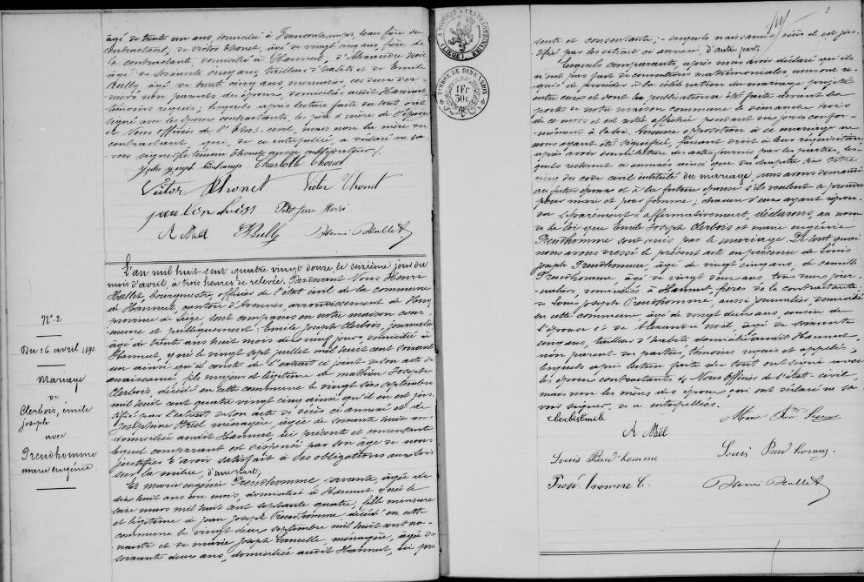 âgé de trente un ans, domicilié à
contractant, de Victor Thonet, âgé de vingt cinq ans, frère de
la contractante, domicilié à Hannut, d'Alexandre Noël
âgé de soixante cinq ans, tailleur d'habits et de Emile
Bully âgé de trente cinq ans ces deux der-
niers non parents des époux, domiciliés audit Hannut
témoins requis; lesquels après lecture faite du tout ont
signé avec les époux contractants, le père et mère de l'épouse
et Nous officier de l'état civil, mais non la mère du
contractant qui, de ce interpellée a déclaré ne sa-
voir signer
Joseph Charlotte Thonet
Victor Thonet Victor Thonet
A Noël Bully Henri Hallet
N° 2
Du 16 avril 1892
Mariage
de
Clerbois, émile
joseph
avec
Preudhomme
marie eugénie
L'an mil huit cent quatre vingt douze, le seizième jour du
mois d'avril, à trois heures de relevée, Pardevant Nous Henri
Hallet, bourgmestre officier de l'état civil de la commune
de Hannut, canton d'Avennes arrondissement de Huy
province de Liége, sont comparus en notre maison com-
mune et publiquement Emile Joseph Clerbois, journalier
âgé de trente ans huit mois dix neuf jours domicilié à
Hannut, y né le vingt sept juillet mil huit cent soixante
un ainsi qu'il conste de l'extrait ci joint selon acte de
naissance, fils majeur et légitime de Mathieu Joseph
Clerbois, décédé en cette commune le vingt six septembre
mil huit cent quatre vingt cinq ainsi qu'il en est jus-
tifié par l'extrait selon acte de décès ci annexé et de
Joséphine ménagère, âgée de soixante ans
domiciliée audit Hannut, ici présente et consentante
lequel comparant est dispensé par son âge de nous
justifier d'avoir satisfait à ses obligations aux lois
sur la milice, d'une part,
Et marie eugénie Preudhomme servante, âgée de
dix huit ans un mois, domiciliée à Hannut y née le
mars mil huit cent septante quatre, fille mineure
et légitime de jean joseph Preudhomme, décédé en cette
commune le vingt deux septembre mil huit cent no-
nante et de marie joseph ménagère, âgée de
soixante deux ans, domiciliée audit Hannut, ici pré
2
1 Fr
50c
sente et consentante;
tifié par les extraits ci annexés, d'autre part.
Lesquels comparants, après nous avoir déclaré qu'ils
n'ont pas fait de conventions matrimoniales, nous ont re-
quis de procéder à la célébration du mariage projeté
entre eux et dont la publication a été faite devant la
porte de notre maison commune le dimanche trois
de ce mois et est restée affichée pendant dix jours confor-
mément à la loi. Aucune opposition à ce mariage ne
nous ayant été signifiée, faisant droit à leur réquisition
après avoir donné lecture des actes fournis par les parties, les-
quels resteront ci annexés ainsi que du chapitre six titre
cinq du code civil intitulé du mariage, nous avons demandé
au futur époux et à la future épouse s'ils veulent se prendre
pour mari et pour femme; chacun d'eux ayant répon-
du séparément et affirmativement, déclarons, au nom
de la loi que Emile Joseph Clerbois et marie eugénie
Preudhomme sont unis par le mariage. De tout quoi
nous avons dressé le présent acte en présence de Louis
joseph Preudhomme, âgé de vingt cinq ans, de camille
Preudhomme âgé de vingt deux ans tous deux jour-
naliers, domiciliés à Hannut, frères de la contractante;
de Louis joseph Preudhomme, aussi journalier, domicilié
en cette commune, âgé de vingt deux ans, cousin de
l'épouse et de Alexandre Noël, âgé de soixante
cinq ans, tailleur d'habits domicilié audit Hannut,
non parent des parties, témoins requis et appelés,
lesquels après lecture faite du tout ont signé avec
les époux contractants et Nous Officier de l'état civil,
mais non les mères des époux qui ont déclaré ne sa-
voir signer, de ce interpellées.
Clerbois Emile
A Noël
Louis Preudhomme Louis Preudhomme
Preudhomme C. Henri Hallet